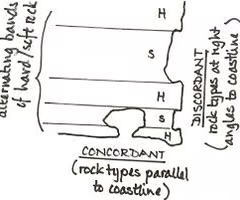 alternating bands
of hard/soft rock
H
S
H
S
H
DISCORDANT
rock types at right
angles to coastline)
CONCORDANT
(rock types parallel
to coastline)